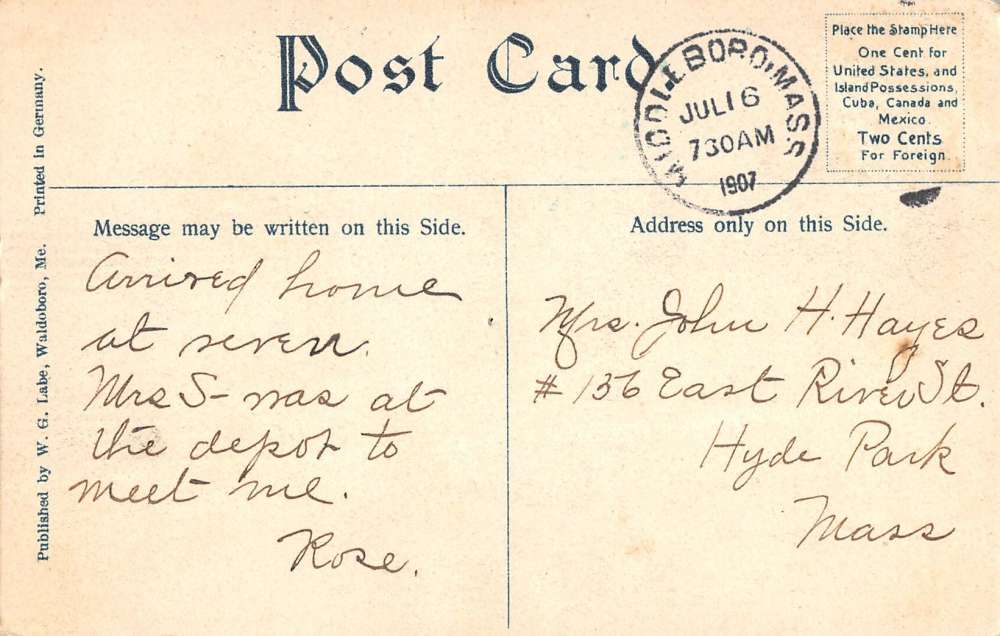 Post Card
MIDDLEBORO, MASS.
JUL 16
730AM
1907
Place the Stamp Here
One Cent for
United States, and
Island Possessions,
Cuba, Canada and
Mexico.
Two Cents
For Foreign.
Published by W. G. Labe, Waldoboro, Me. Printed in Germany.
Message may be written on this Side.
Arrived home
at seven.
Mrs S- was at
the depot to
meet me.
Rose.
Address only on this Side.
Mrs. John H. Hayes
# 136 East River St.
Hyde Park
Mass